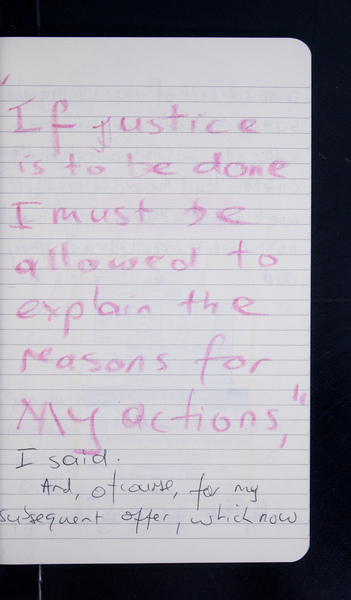 "If justice
is to be done
I must be
allowed to
explain the
reasons for
My actions,"
I said.
And, ofcourse, for my
subsequent offer, which now